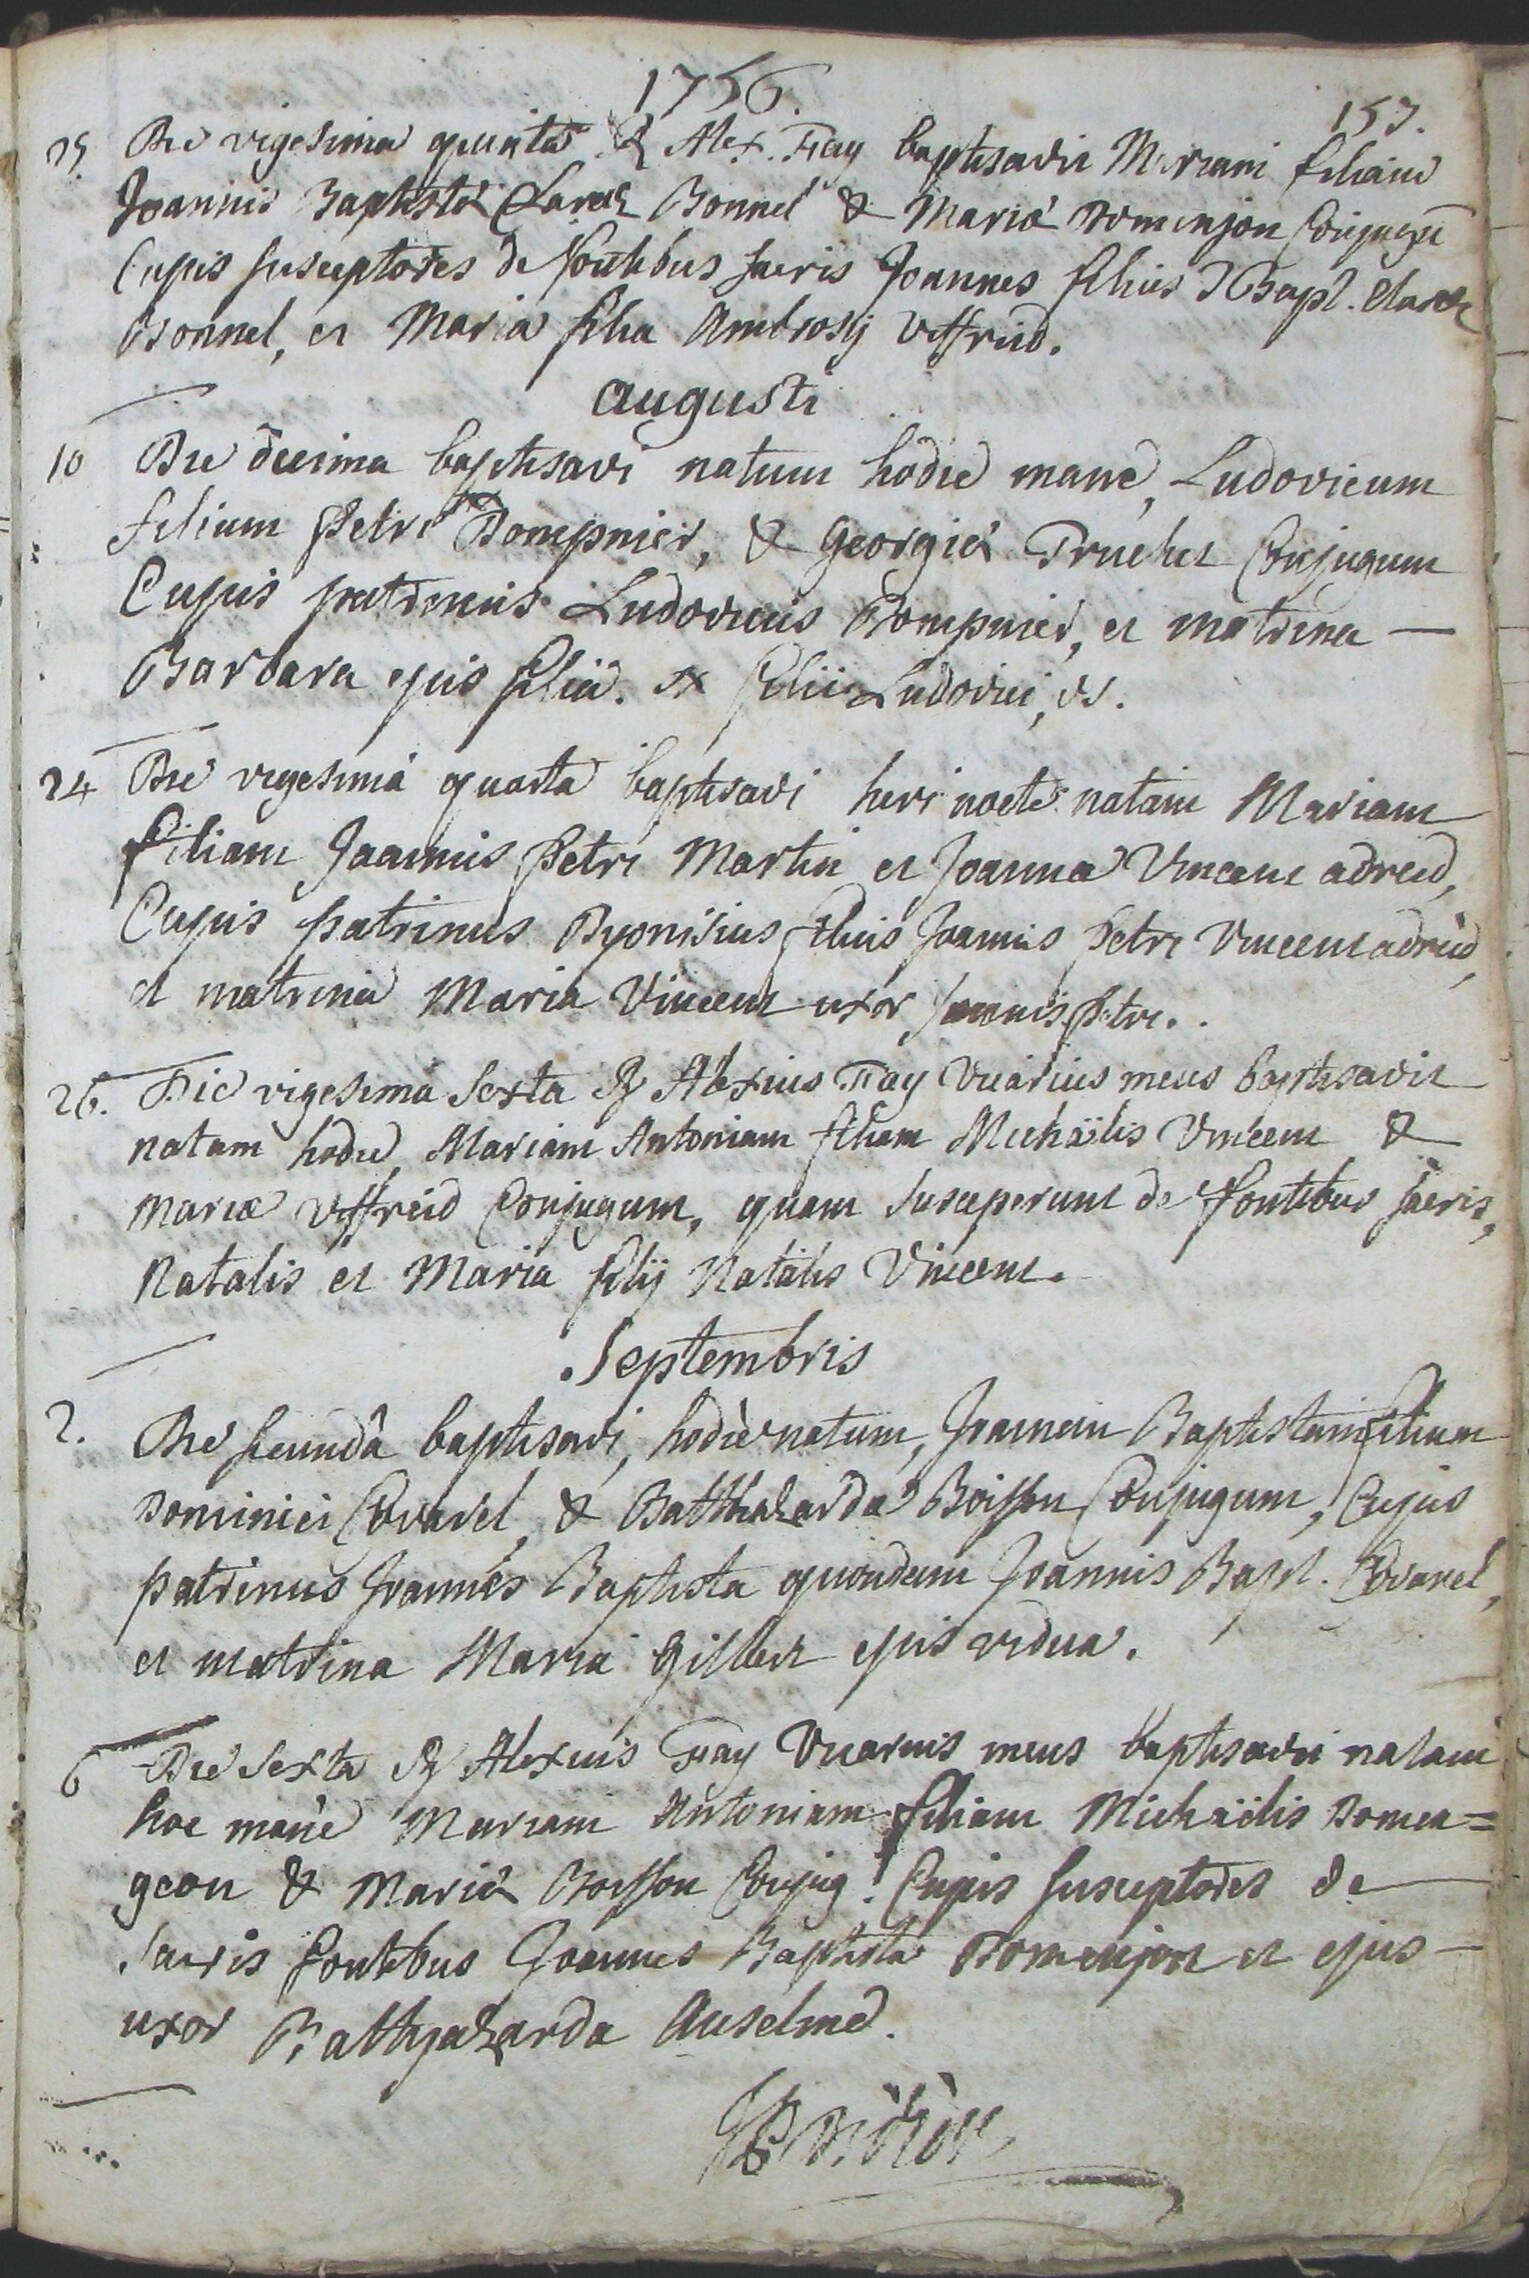 1756.
157.
25. Die vigesima quinta R Alex. Fay baptisavit Mariam filiam
Joannis Baptistæ Bonnel & Mariæ Domenjon Conjugū
Cujus susceptores de fontibus sacris Joannes filius J Bapt.
Bonnel, et Maria filia Ambrosij Viffrid.
Augusti
10 Die decima baptisavi natum hodie mane, Ludovicum
filium Petri Dompnier, & Georgiæ Truchet Conjugum
Cujus patrinus Ludovicus Dompnier, et matrina —
Barbara ejus filia. Ludovici,
24 Die vigesima quarta baptisavi heri nocte natam Mariam
filiam Joannis Petri Martin et Joanna Vincent adreid,
Cujus patrinus Dyonisius filius Joannis Petri Vincent adreid,
et matrina Maria Vincent uxor Joannis Petri.
26. Die vigesima Sexta R Alexius Fay Vicarius meus baptisavit
natam hodie, Mariam Antoniam filiam Michaëlis Vincent &
Mariæ Viffreid Conjugum, quam susceperunt de fontibus sacris,
Natalis et Maria filij Natalis Vincent.
Septembris
2. Die secundâ baptisavi, hodiè natum, Joannem Baptistam filium
Dominici Covarel, & Batthazarda Boisson Conjugum, Cujus
patrinus Joannes Baptista quondam Joannis Bapt. Covarel,
et matrina Maria Gilbert ejus vidua.
6 Die Sexta R Alexius Fay Vicarius meus baptisavit natam
hoc mane Mariam Antoniam filiam Michaëlis Domen=
geon & Mariæ Boisson Conjug! Cujus susceptores de —
sacris fontibus Joannes Baptista Domenjon et ejus —
uxor Batthazarda Anselmed.